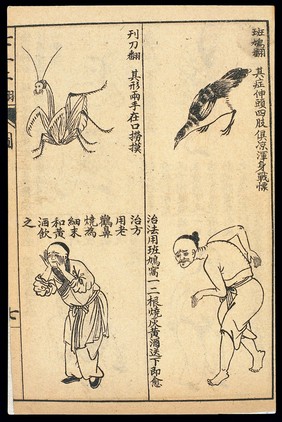 班鳩翻
其症伸頭四肢俱涼渾身戰慄
治法用班鳩窩一二根燒灰黃酒送下即愈
刋刀翻
其形兩手在口撈摸
治方
用老
鸛鼻
燒為
細末
和黃
酒飲
之
圖
七